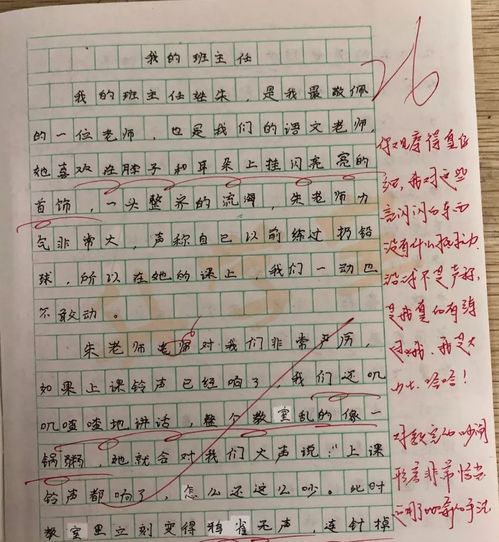 我的班主任
我的班主任姓朱，是我最敬佩
的一位老师，也是我们的语文老师，
她喜欢在脖子和耳朵上挂闪亮亮的
首饰，一头整齐的流海，朱老师力
气非常大，声称自己以前练过扔铅
球，所以在她的课上，我们一动也
不敢动。
朱老师老师对我们非常严厉，
如果上课铃声已经响了，我们还叽
叽喳喳地讲话，整个教室乱的像一
锅粥，她就会对我们大声说："上课
铃声都响了，怎么还这么吵。此时
教室里立刻变得鸦雀无声，连针掉
26
你观察得真仔
我对这些
闪闪的东西
没有什么抵抗力
是我真的有
我是大
力士，哈哈！
对教室的吵闹
形容非常恰当
运用了